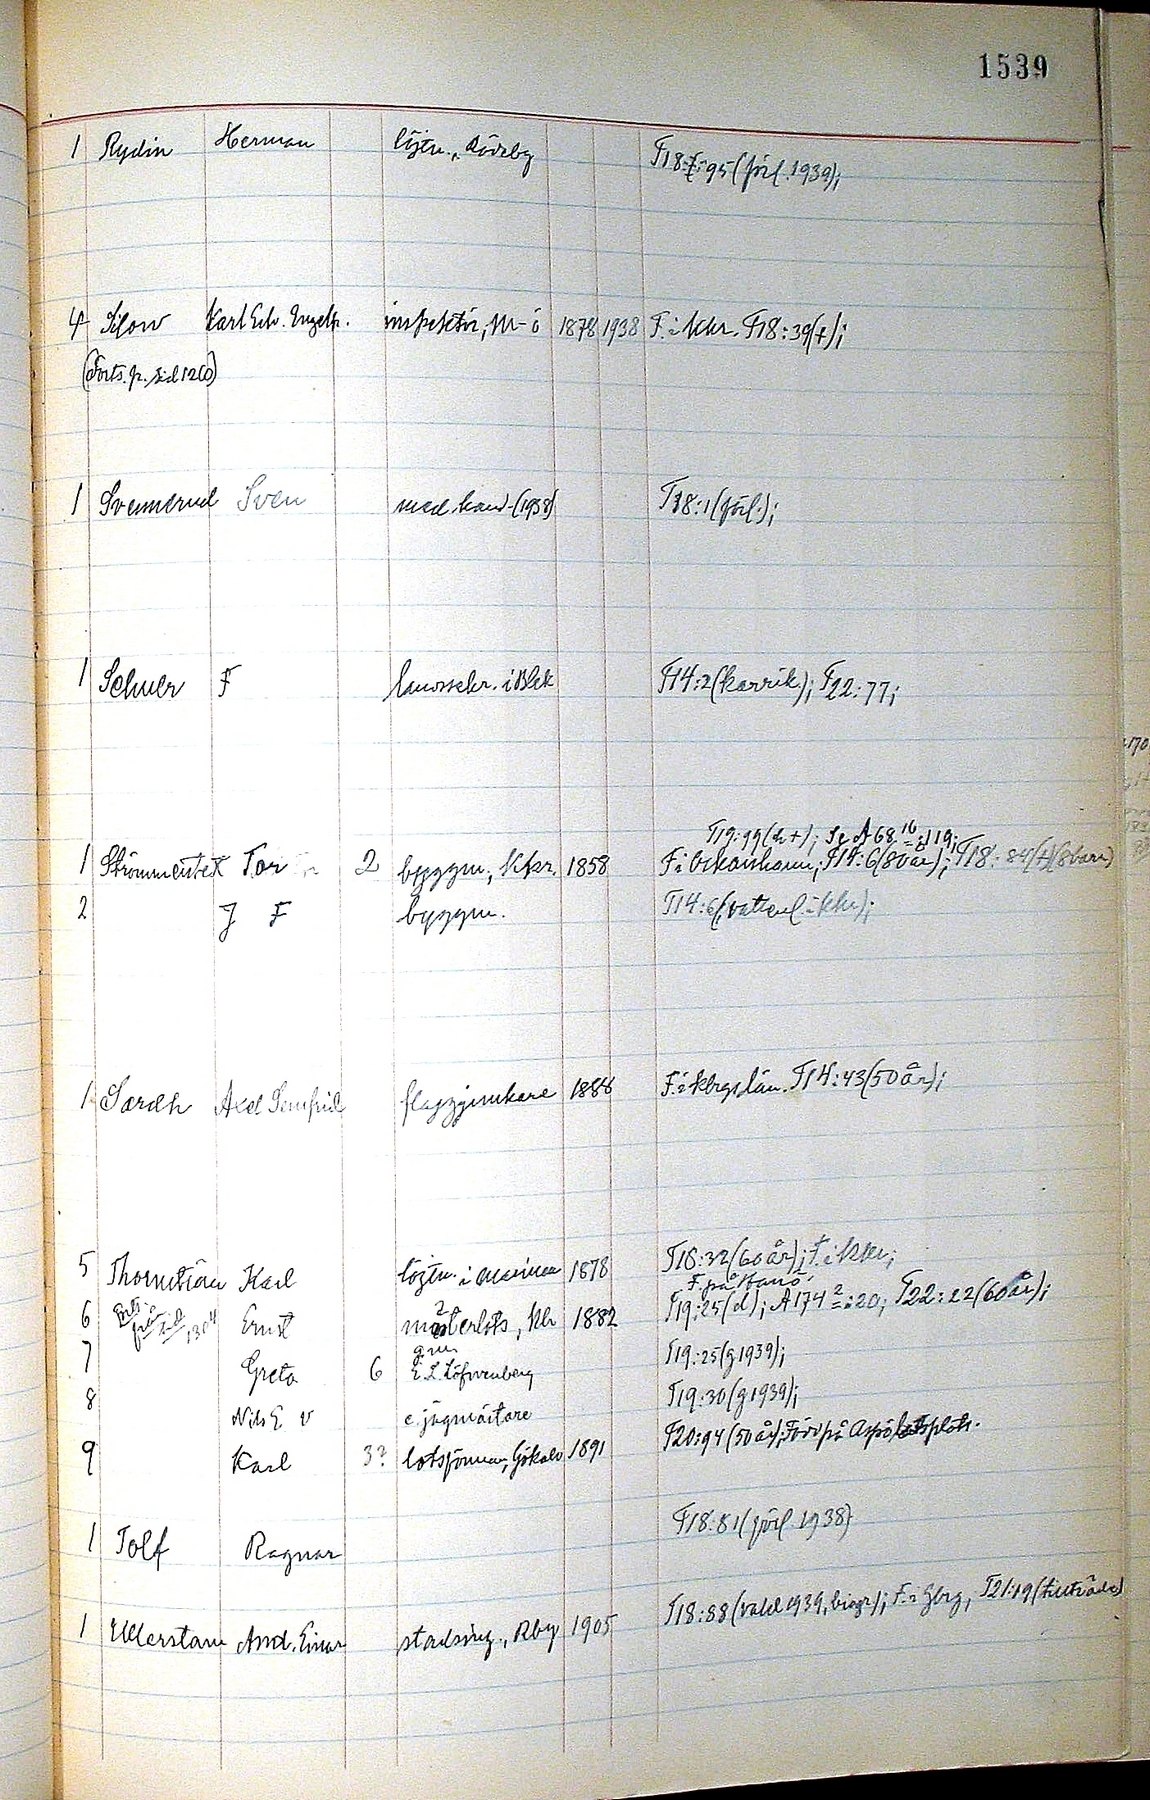 1539
1 Rydin Herman löjtn., Rödeby T18:95 (förl. 1939);
4 Silow Karl Edv. Engelb. inspektör, 1878 1938 F. i Kkr. T18:39(†);
(Forts. fr. sid 1260)
1 Svennerud Sven med. kand. (1938) T18:1 (förl.);
1 Schuer F landssekr. i Blek T14:2 (karrik.); T22:77;
T19:99 (d. †); Se A 68 16 = :119;
1 Tor 2 byggm., Kkr. 1858 F. i Oskarshamn; T14:6 (80 år); T18:84 (†)
2 J F byggm. T14:6 (vattenl. i Kkr);
1 Sardh Axel Semfrid flaggjunkare 1888 F. i Kbrgs län. T14:43 (50 år);
5 Karl löjtn. i marinen 1878 T18:32 (60 år); F. i Kkr;
F. på Hanö.
6 Ernst mästerlots, 1882 T19:25 (d); A 174 2 = :20; T22:22 (60 år);
från sid 1304
7 Greta 6 g.m. E. L. Löfvenberg T19:25 (g 1939);
8 Nils E v e. jägmästare T19:30 (g 1939);
9 Karl 3? lotsförman, 1891 T20:94 (50 år); Född på Aspö lotsplats.
1 Tolf Ragnar T18:81 (förl. 1938)
1 Ullerstam And. Einar stadsing., Rby 1905 T18:88 (vald 1939, biogr); F. i Gbrg, T21:19 (tillträde)